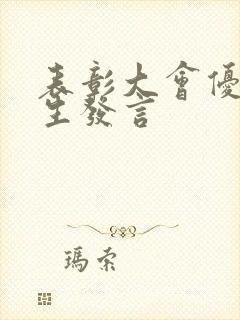 表彰大會優
生發言
瑪索